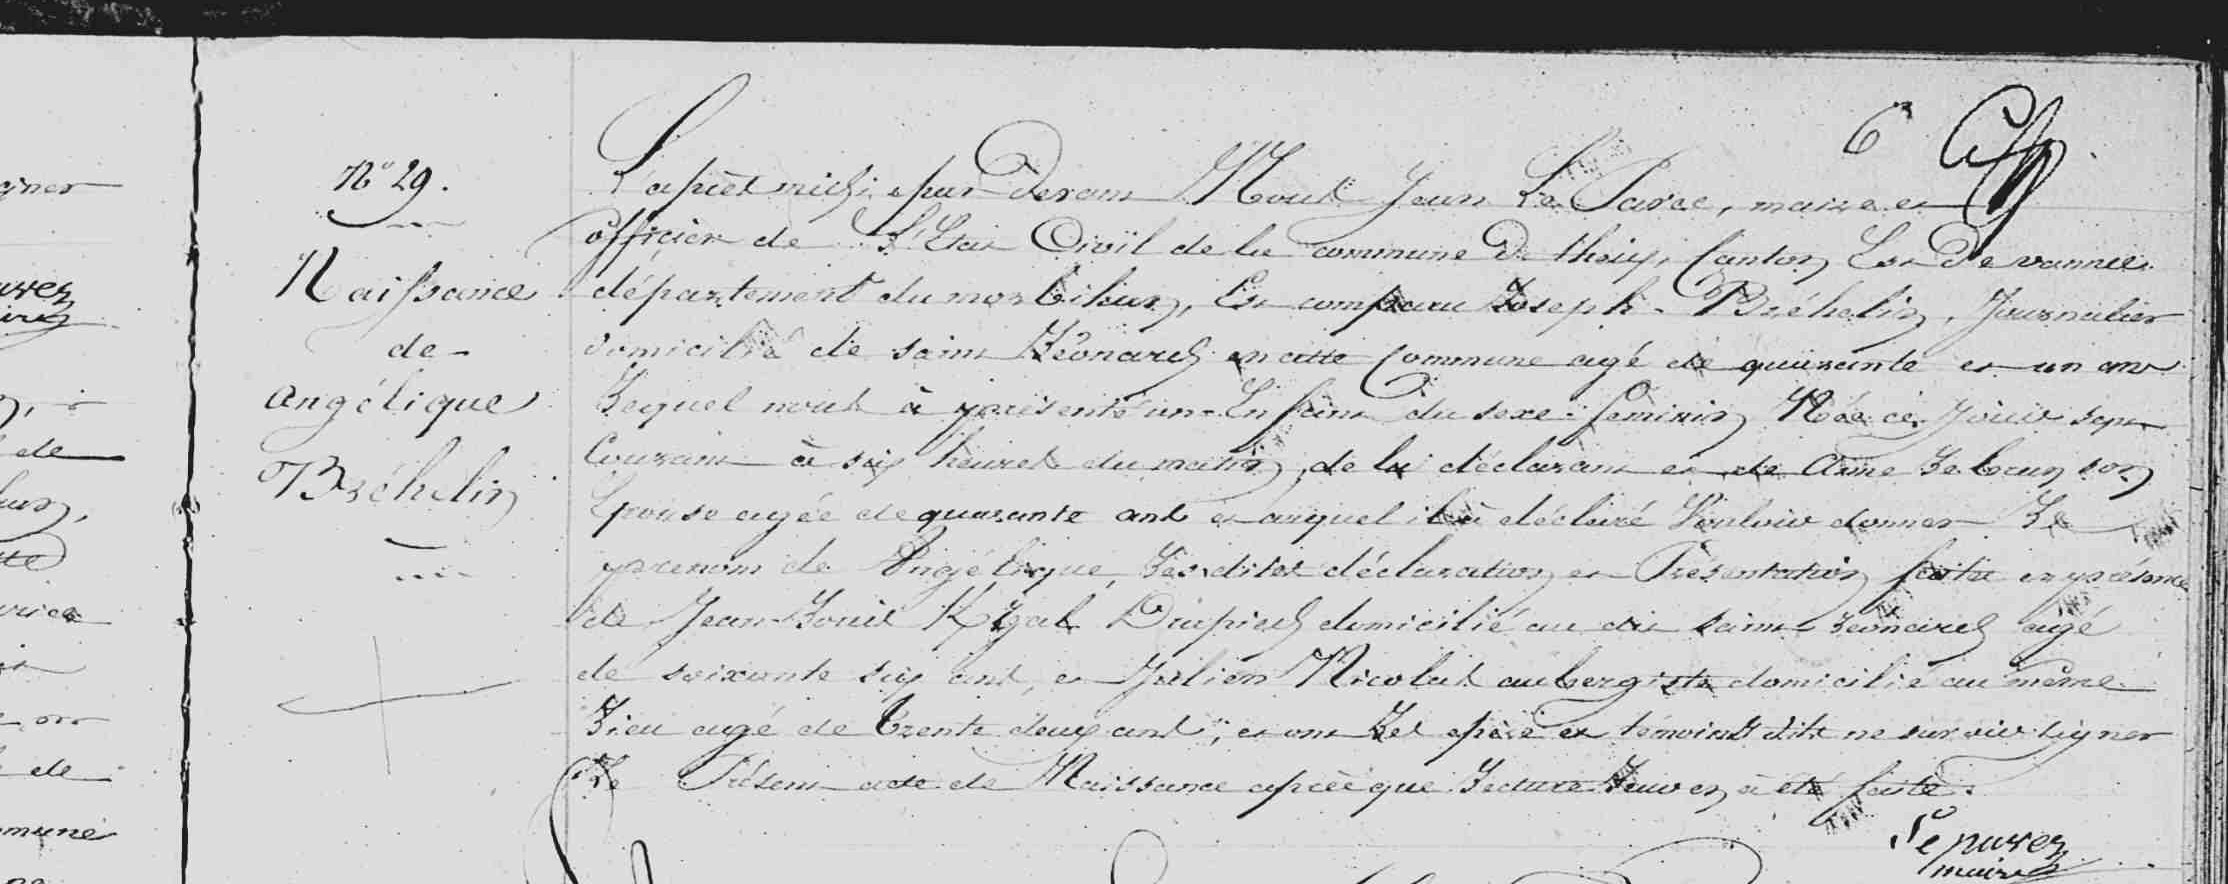 6
N° 29.
Naissance
de
Angélique
Bréhelin
L'après midi, par Devant Nous Jean Le Parec, maire et
officier de L'Etat Civil de la commune De theix, Canton Est De vannes
département du morbihan, Est comparu Joseph Bréhelin, Journalier
domicilié de saint Léonard en cette Commune agé de quarante et un ans
Lequel nous à présenté un Enfant du sexe feminin Née ce Jour sept
Courant à six heures du matin, de lui déclarant et de Anne son
Epouse agée de quarante ans et auquel il à déclaré Vouloir donner Le
prenom de Angélique, Lesdites déclaration et Présentation faite en présence
de Jean Louis domicilié au dit saint Léonard agé
de soixante six ans, et Julien Nicolas aubergiste domicilié au même
Lieu agé de trente deux ans, et ont Les père et témoins dits ne savoir signer
Le Présent acte de Naissance après que Lecture Leur en à été faite.
maire
gner
de
tte
de
mune